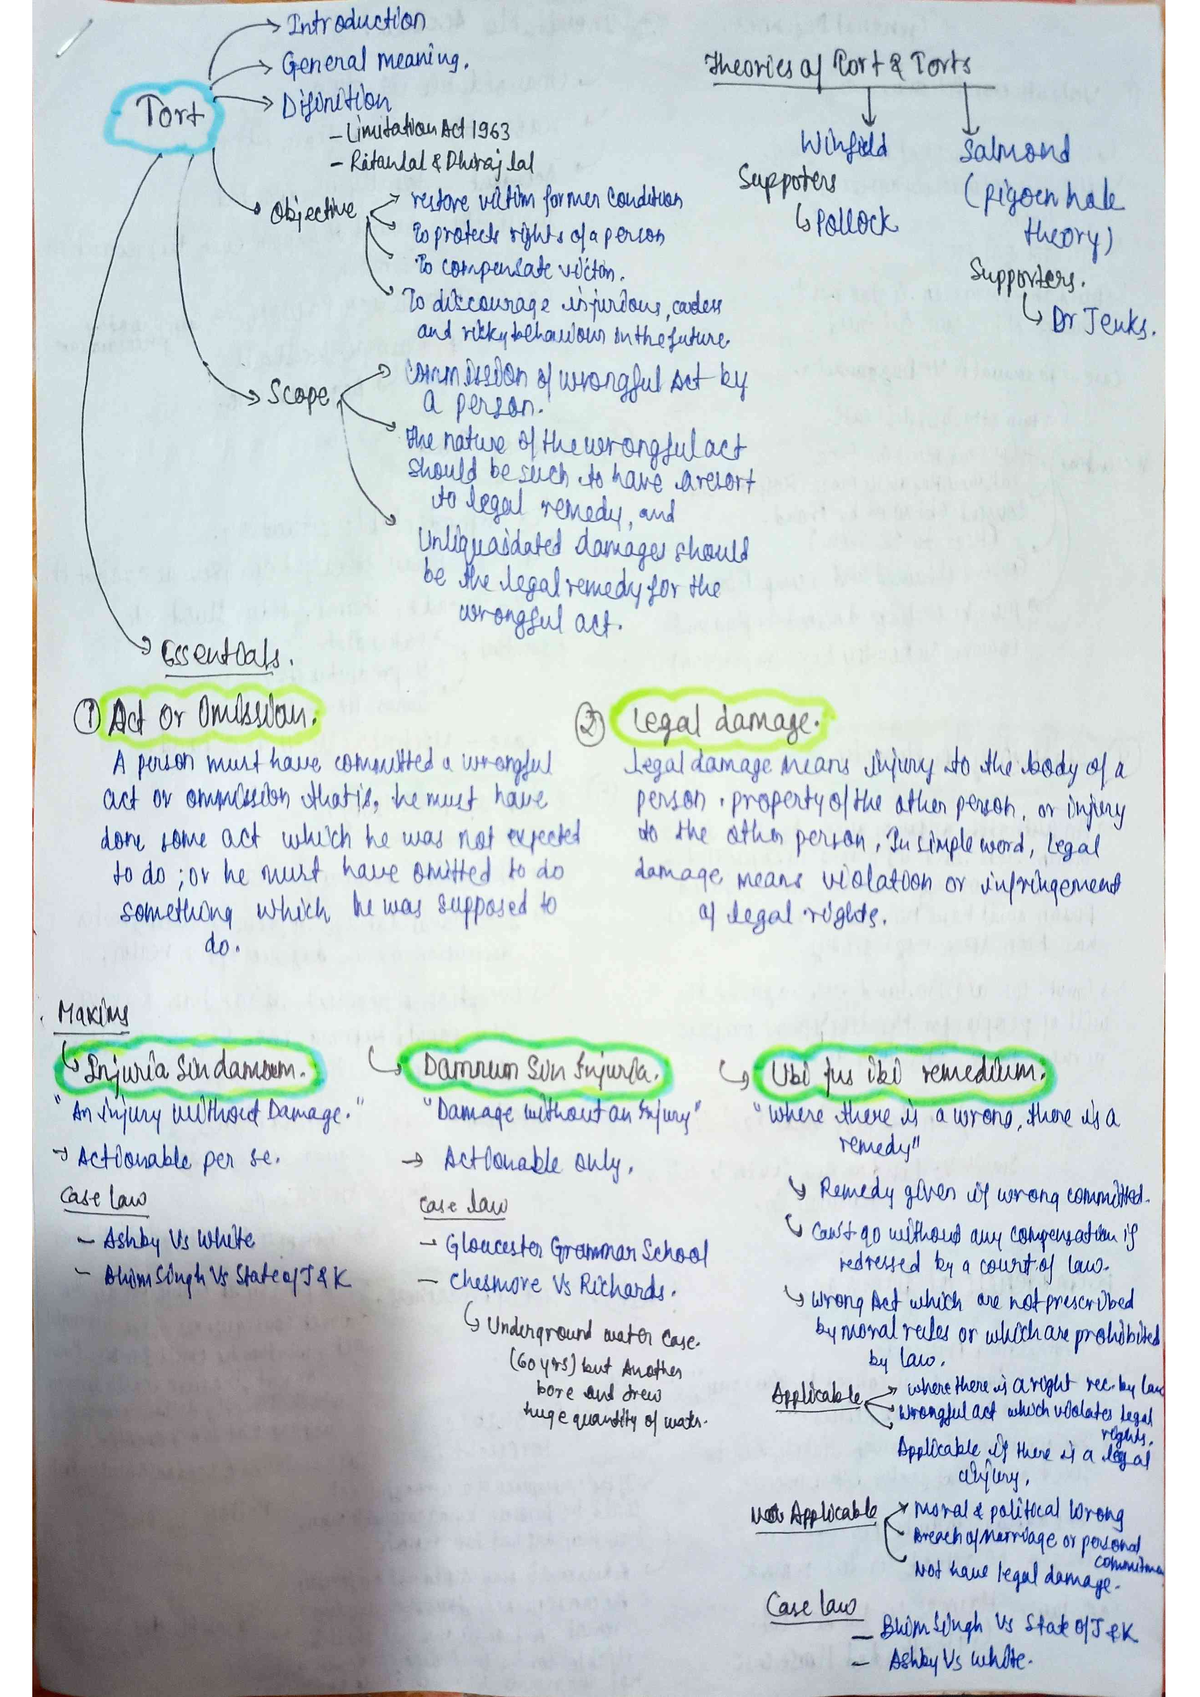 Tort
Introduction
General meaning.
Difinition
- Limitation Act 1963
- Ratanlal & Dhirajlal
Objective
restore victim former condition
To protects rights of a person
To compensate victim.
To discourage injurious, careless
and risky behaviour in the future.
Scope
Commission of wrongful Act by
a person.
the nature of the wrongful act
should be such to have a resort
to legal remedy, and
Unliquaidated damages should
be the legal remedy for the
wrongful act.
Essentials.
Theories of Tort & Torts
Winfield
Supporters
Pollock
Salmond
(pigoen hole
theory)
Supporters.
Dr Jenks.
① Act or Omission.
A person must have committed a wrongful
act or ommission that is, he must have
done some act which he was not expected
to do ; or he must have omitted to do
something which he was supposed to
do.
② Legal damage.
Legal damage means injury to the body of a
person, property of the other person, or injury
to the other person, In simple word, Legal
damage means violation or infringement
of legal rights.
Maxims
Injuria Sin damnum.
"An injury without Damage."
→ Actionable per se.
Case law
- Ashby Vs White
- Bhim Singh Vs State of J & K
Damnum Sin Injuria.
"Damage without an Injury"
→ Actionable only.
Case law
- Gloucester Grammar School
- Chesmore Vs Richards.
Underground water case.
(60 yrs) but Another
bore and drew
huge quantity of water.
Ubi jus ibi remedium.
"Where there is a wrong, there is a
remedy"
Remedy given if wrong committed.
Can't go without any compensation if
redressed by a court of law.
Wrong Act which are not prescribed
by moral rules or which are prohibited
by law.
Applicable
where there is a right rec. by law
Wrongful act which violates legal
rights.
Applicable if there is a legal
injury.
Not Applicable
Moral & political Wrong
Breach of Marriage or personal
commitmen
Not have legal damage.
Case law
- Bhim Singh Vs State of J & K
- Ashby Vs White.